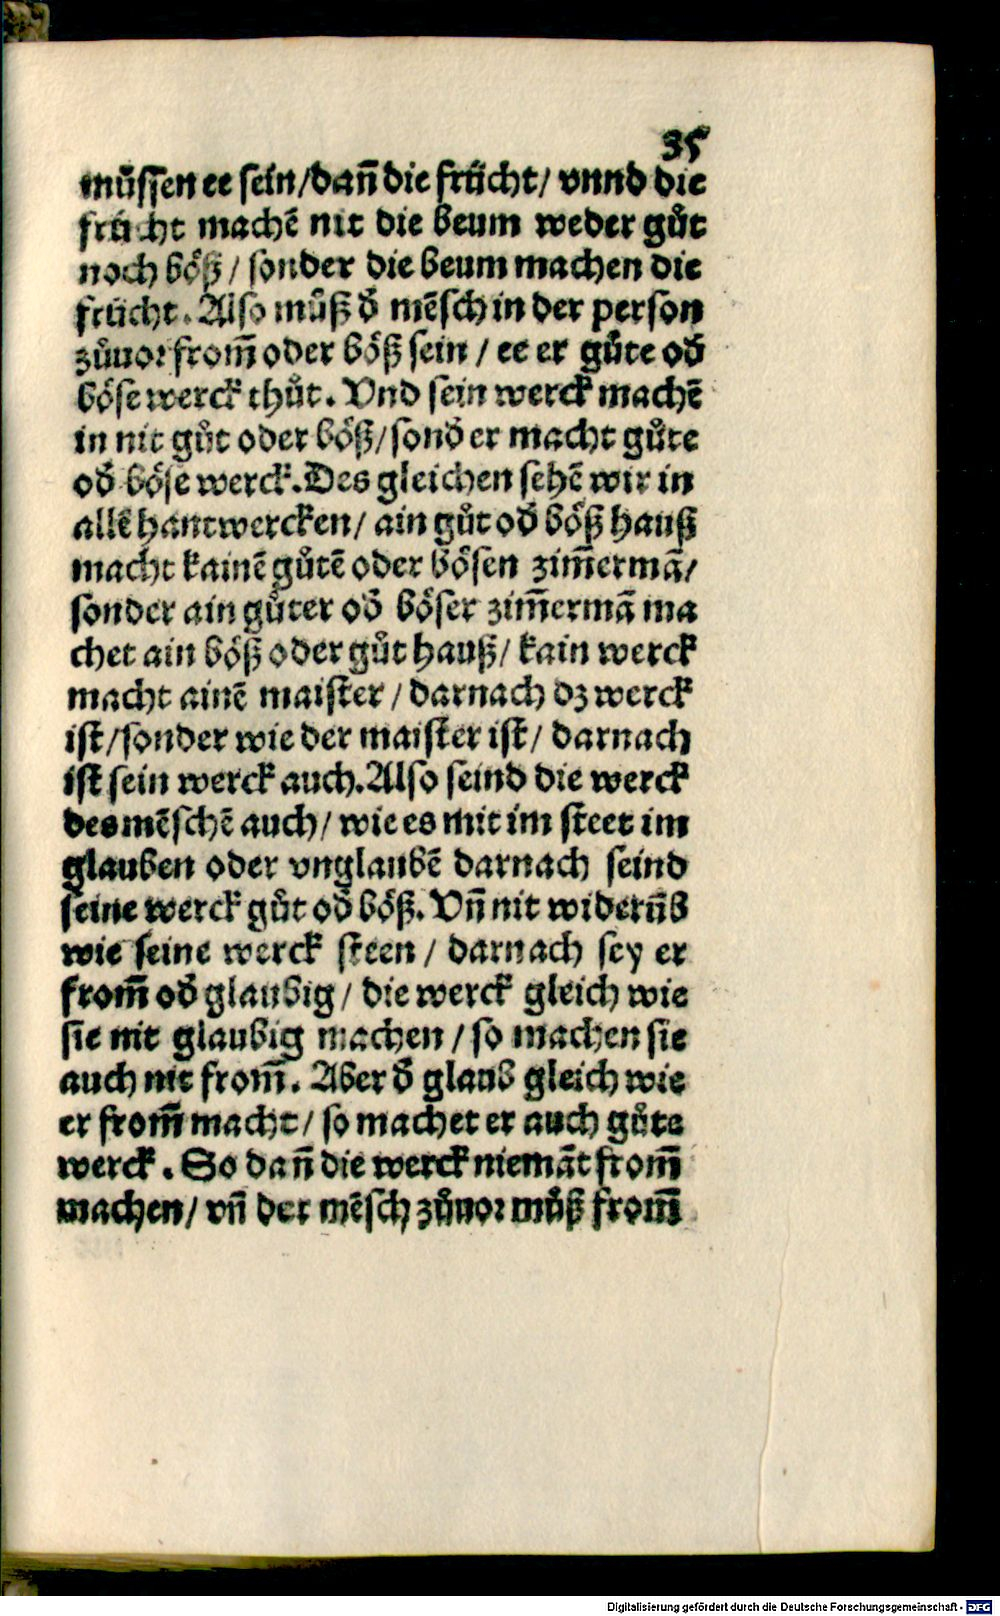 35
muͤssen ee sein/dañ die frücht/ vnnd die
frücht machē nit die beum weder guͦt
noch böß/ sonder die beum machen die
frücht. Also muͦß d̄ mēsch in der person
zuͦuor from̄ oder böß sein/ ee er guͦte od̄
böse werck thuͦt. Vnd sein werck machē
in nit guͦt oder böß/sond̄ er macht guͦte
od̄ böse werck. Des gleichen sehē wir in
allē hantwercken/ ain guͦt od̄ böß hauß
macht kainē guͦtē oder bösen zim̄ermā/
sonder ain guͦter od̄ böser zim̄ermā ma
chet ain böß oder guͦt hauß/ kain werck
macht ainē maister/ darnach dz werck
ist/sonder wie der maister ist/ darnach
ist sein werck auch. Also seind die werck
des mēschē auch/ wie es mit im steet im
glauben oder vnglaubē darnach seind
seine werck guͦt od̄ böß. Vñ nit widerūb
wie seine werck steen/ darnach sey er
from̄ od̄ glaubig/ die werck gleich wie
sie nit glaubig machen/ so machen sie
auch nit from̄. Aber d̄ glaub gleich wie
er from̄ macht/ so machet er auch guͦte
werck. So dañ die werck niemāt from̄
machen/ vñ der mēsch zuͦuor muͦß from̄
Digitalisierung gefördert durch die Deutsche Forschungsgemeinschaft - DFG